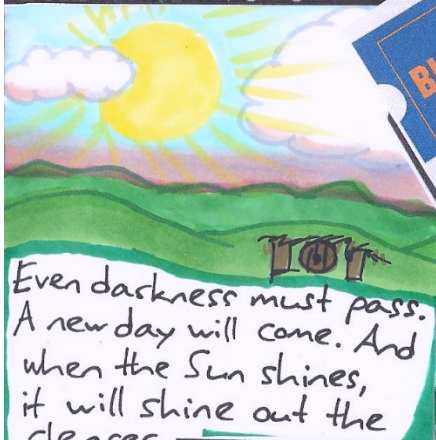 Even darkness must pass.
A new day will come. And
when the Sun shines,
it will shine out the